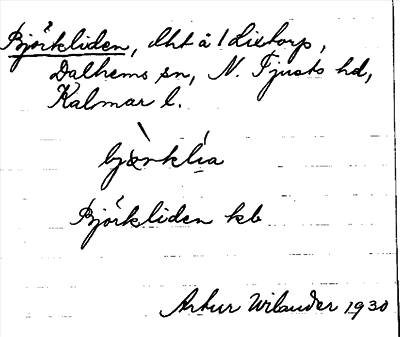 Björkliden, lht å 1 Lixtorp,
Dalhems sn, N. Tjusts hd,
Kalmar l.
bjœ̀rklía
Björkliden kb
Artur Wilander 1930